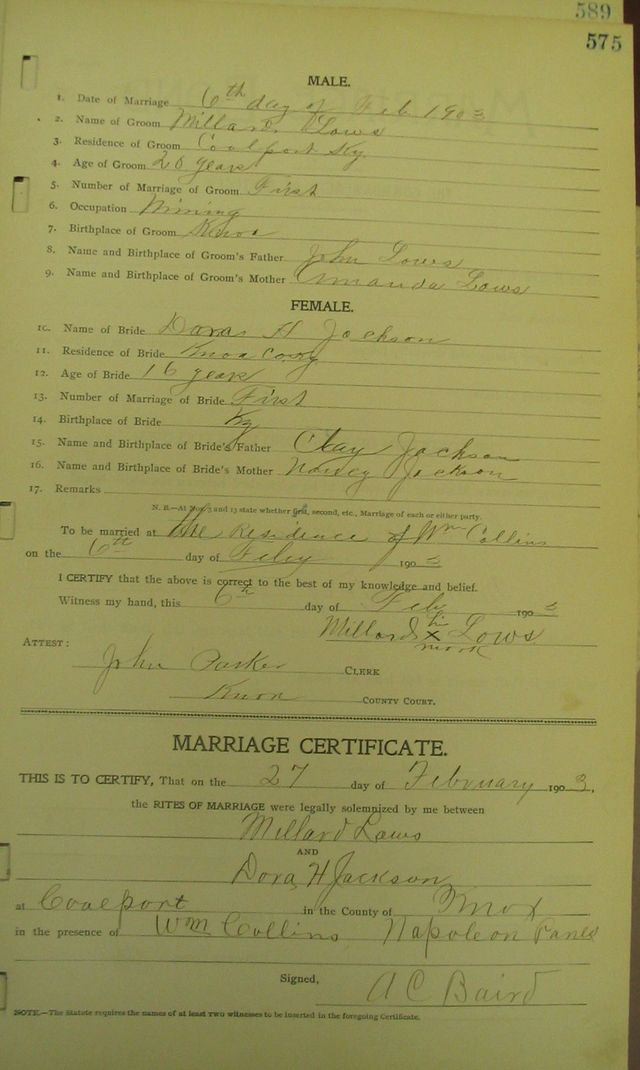 589
575
MALE.
1. Date of Marriage 6th day of Feb 1903
2. Name of Groom Millard Lows
3. Residence of Groom Coalport Ky.
4. Age of Groom 20 years
5. Number of Marriage of Groom First
6. Occupation Mining
7. Birthplace of Groom Knox
8. Name and Birthplace of Groom's Father John Lows
9. Name and Birthplace of Groom's Mother Amanda Lows
FEMALE.
10. Name of Bride Dora H Jackson
11. Residence of Bride Knox
12. Age of Bride 16 years
13. Number of Marriage of Bride First
14. Birthplace of Bride Ky
15. Name and Birthplace of Bride's Father Clay Jackson
16. Name and Birthplace of Bride's Mother Nancy Jackson
17. Remarks
N. B.—At Nos. 5 and 13 state whether first, second, etc., Marriage of each or either party.
To be married at the Residence of Wm Collins
on the 6th day of Feby 1903
I CERTIFY that the above is correct to the best of my knowledge and belief.
Witness my hand, this 6th day of Feb 1903
Millard his x mark Lows
ATTEST:
John Parker CLERK
Knox COUNTY COURT.
MARRIAGE CERTIFICATE.
THIS IS TO CERTIFY, That on the 27 day of February 1903,
the RITES OF MARRIAGE were legally solemnized by me between
Millard Laws
AND
Dora H Jackson
at Coalport in the County of Knox
in the presence of Wm Collins Napoleon
Signed,
A C Baird
NOTE.—The Statute requires the names of at least two witnesses to be inserted in the foregoing Certificate.